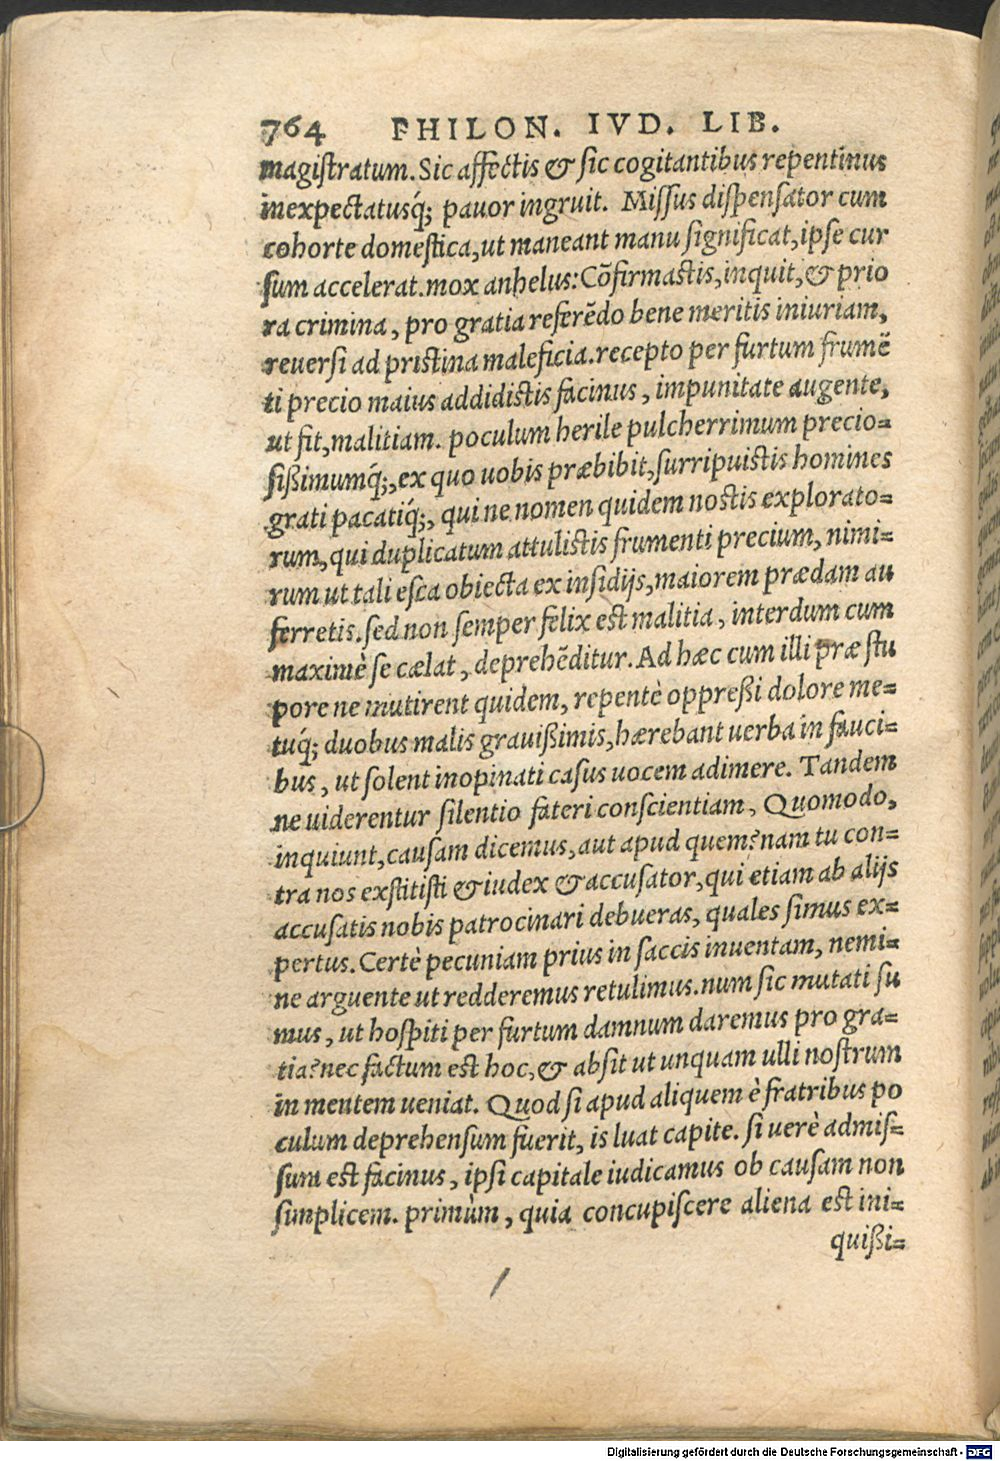 764 PHILON. IVD. LIB.
magiſtratum. Sic affectis & ſic cogitantibus repentinus
inexpectatusq́; pauor ingruit. Miſſus diſpenſator cum
cohorte domeſtica, ut maneant manu ſignificat, ipſe cur
ſum accelerat. mox anhelus: Cōfirmaſtis, inquit, & prio
ra crimina, pro gratia referēdo bene meritis iniuriam,
reuerſi ad priſtina maleficia. recepto per furtum frumē
ti precio maius addidiſtis facinus, impunitate augente,
ut fit, malitiam. poculum herile pulcherrimum precio=
ſißimumq́;, ex quo uobis præbibit, ſurripuiſtis homines
grati pacatiq́;, qui ne nomen quidem noſtis explorato=
rum, qui duplicatum attuliſtis frumenti precium, nimi=
rum ut tali eſca obiecta ex inſidijs, maiorem prædam au
ferretis. ſed non ſemper felix eſt malitia, interdum cum
maximè ſe cælat, deprehēditur. Ad hæc cum illi præ ſtu
pore ne mutirent quidem, repentè oppreßi dolore me=
tuq́; duobus malis grauißimis, hærebant uerba in fauci=
bus, ut ſolent inopinati caſus uocem adimere. Tandem
ne uiderentur ſilentio fateri conſcientiam, Quomodo,
inquiunt, cauſam dicemus, aut apud quem? nam tu con=
tra nos exſtitiſti & iudex & accuſator, qui etiam ab alijs
accuſatis nobis patrocinari debueras, quales ſimus ex=
pertus. Certè pecuniam prius in ſaccis inuentam, nemi=
ne arguente ut redderemus retulimus. num ſic mutati ſu
mus, ut hoſpiti per furtum damnum daremus pro gra=
tia? nec factum eſt hoc, & abſit ut unquam ulli noſtrum
in mentem ueniat. Quod ſi apud aliquem è fratribus po
culum deprehenſum fuerit, is luat capite. ſi uerè admiſ=
ſum eſt facinus, ipſi capitale iudicamus ob cauſam non
ſimplicem. primùm, quia concupiſcere aliena eſt ini=
quißi=
Digitalisierung gefördert durch die Deutsche Forschungsgemeinschaft - DFG